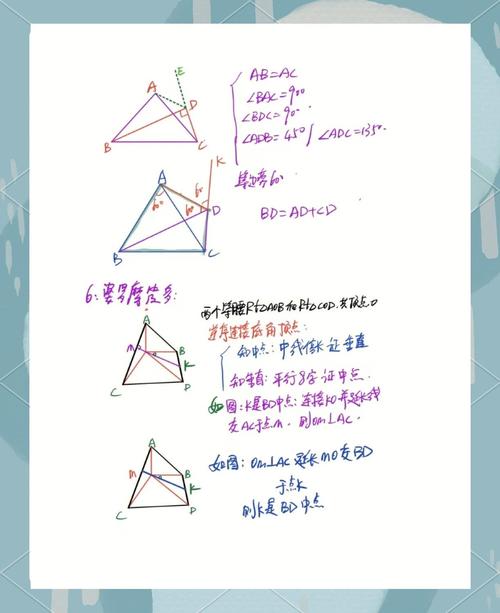 E
A
D
B
C
AB=AC
∠BAC=90°
∠BDC=90°
∠ADB=45° / ∠ADC=135°
K
A
60
60
60°
D
B
C
60
BD=AD+CD
6:婆罗摩笈多:
两个等腰Rt△AOB和Rt△COD.共顶点O
连接底角顶点:
知中点:中线倍长证垂直
知垂直:平行8字证中点.
如图:K是BD中点:连接KO并延长
交AC于点M. 则OM⊥AC.
A
M
B
K
C
D
如图:OM⊥AC 延长MO交BD
于点K
则K是BD中点
A
M
B
K
C
D